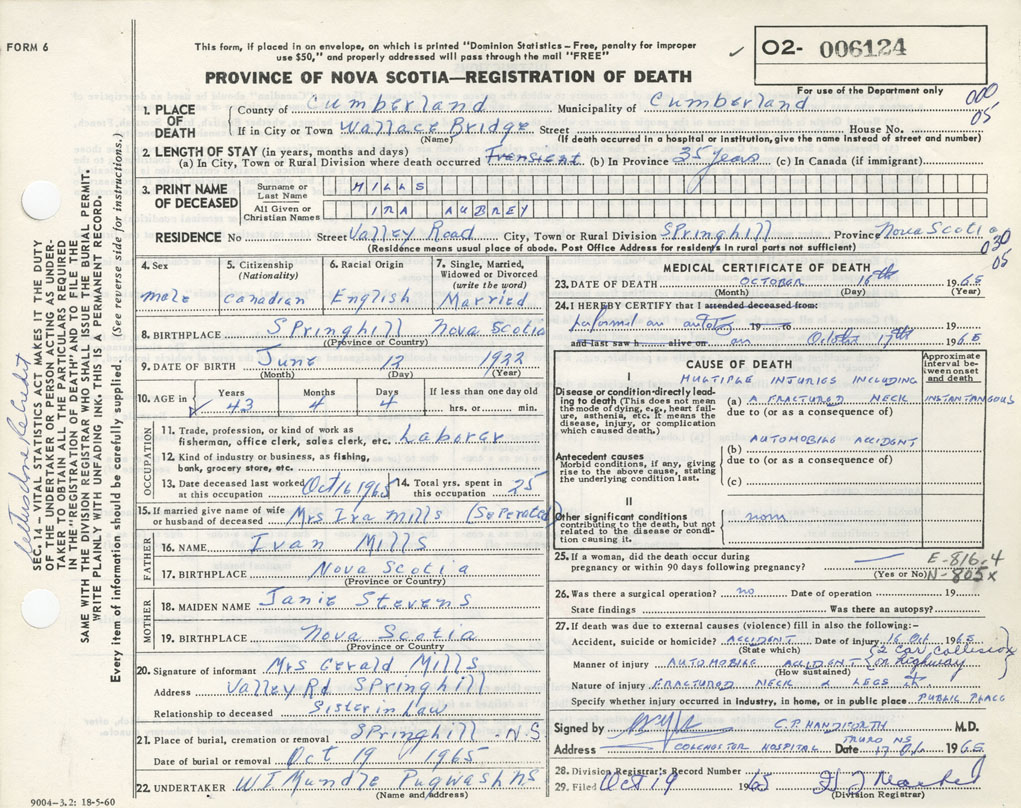 FORM 6
This form, if placed in an envelope, on which is printed "Dominion Statistics – Free, penalty for improper
use $50," and properly addressed will pass through the mail "FREE"
PROVINCE OF NOVA SCOTIA—REGISTRATION OF DEATH
✓ O2- 006124
For use of the Department only
000
05
1. PLACE OF DEATH { County of Cumberland Municipality of Cumberland
If in City or Town Wallace Bridge Street House No.
(Name) (If death occurred in a hospital or institution, give the name instead of street and number)
2. LENGTH OF STAY (in years, months and days)
(a) In City, Town or Rural Division where death occurred Transient (b) In Province 35 years (c) In Canada (if immigrant)
3. PRINT NAME OF DECEASED { Surname or Last Name MILLS
All Given or Christian Names IRA AUBREY
RESIDENCE No Street Valley Road City, Town or Rural Division SPringhill Province Nova Scotia
(Residence means usual place of abode. Post Office Address for residents in rural parts not sufficient)
030
05
4. Sex male
5. Citizenship (Nationality) Canadian
6. Racial Origin English
7. Single, Married, Widowed or Divorced (write the word) Married
8. BIRTHPLACE SPringhill Nova Scotia
(Province or Country)
9. DATE OF BIRTH June 12 1922
(Month) (Day) (Year)
10. AGE in Years 43 Months 4 Days 4 If less than one day old hrs. or min.
OCCUPATION
11. Trade, profession, or kind of work as fisherman, office clerk, sales clerk, etc. Laborer
12. Kind of industry or business, as fishing, bank, grocery store, etc.
13. Date deceased last worked at this occupation Oct 16 1965 14. Total yrs. spent in this occupation 25
15. If married give name of wife or husband of deceased Mrs Ira Mills (Seperated)
FATHER
16. NAME Ivan Mills
17. BIRTHPLACE Nova Scotia
(Province or Country)
MOTHER
18. MAIDEN NAME Janie Stevens
19. BIRTHPLACE Nova Scotia
(Province or Country)
20. Signature of informant Mrs Gerald Mills
Address Valley Rd SPringhill
Relationship to deceased Sister in Law
21. Place of burial, cremation or removal SPringhill - N.S
Date of burial or removal Oct 19 1965
22. UNDERTAKER W.T. Mundle Pugwash NS
(Name and address)
9004-3.2: 18-5-60
MEDICAL CERTIFICATE OF DEATH
23. DATE OF DEATH OCTOBER 16th 1965
(Month) (Day) (Year)
24. I HEREBY CERTIFY that I attended deceased from:
performed an 19 to 19
and last saw h alive on on October 17th 1965
CAUSE OF DEATH
Approximate interval between onset and death
I
Disease or condition directly leading to death (This does not mean the mode of dying, e.g., heart failure, asthenia, etc. It means the disease, injury, or complication which caused death.)
MULTIPLE INJURIES INCLUDING
(a) A FRACTURED NECK INSTANTANEOUS
due to (or as a consequence of)
Antecedent causes
Morbid conditions, if any, giving rise to the above cause, stating the underlying condition last.
AUTOMOBILE ACCIDENT
(b)
due to (or as a consequence of)
(c)
II
Other significant conditions
contributing to the death, but not related to the disease or condition causing it. none
25. If a woman, did the death occur during pregnancy or within 90 days following pregnancy? —
(Yes or No)
E-816.4
N-805x
26. Was there a surgical operation? no Date of operation 19
State findings Was there an autopsy?
27. If death was due to external causes (violence) fill in also the following:–
Accident, suicide or homicide? ACCIDENT Date of injury 16 Oct 1965
(State which)
Manner of injury AUTOMOBILE ACCIDENT (2 car collision on highway)
(How sustained)
Nature of injury FRACTURED NECK & LEGS
Specify whether injury occurred in industry, in home, or in public place PUBLIC PLACE
Signed by C.P. HANDFORTH M.D.
Address COLCHESTER HOSPITAL TRURO NS Date 17 Oct 1965
28. Division Registrar's Record Number
29. Filed Oct 19 1965
(Division Registrar)
SEC. 14 – VITAL STATISTICS ACT MAKES IT THE DUTY
OF THE UNDERTAKER OR PERSON ACTING AS UNDER-
TAKER TO OBTAIN ALL THE PARTICULARS REQUIRED
IN THE "REGISTRATION OF DEATH" AND TO FILE THE
SAME WITH THE DIVISION REGISTRAR WHO SHALL ISSUE THE BURIAL PERMIT.
WRITE PLAINLY WITH UNFADING INK. THIS IS A PERMANENT RECORD.
Every item of information should be carefully supplied. (See reverse side for instructions.)